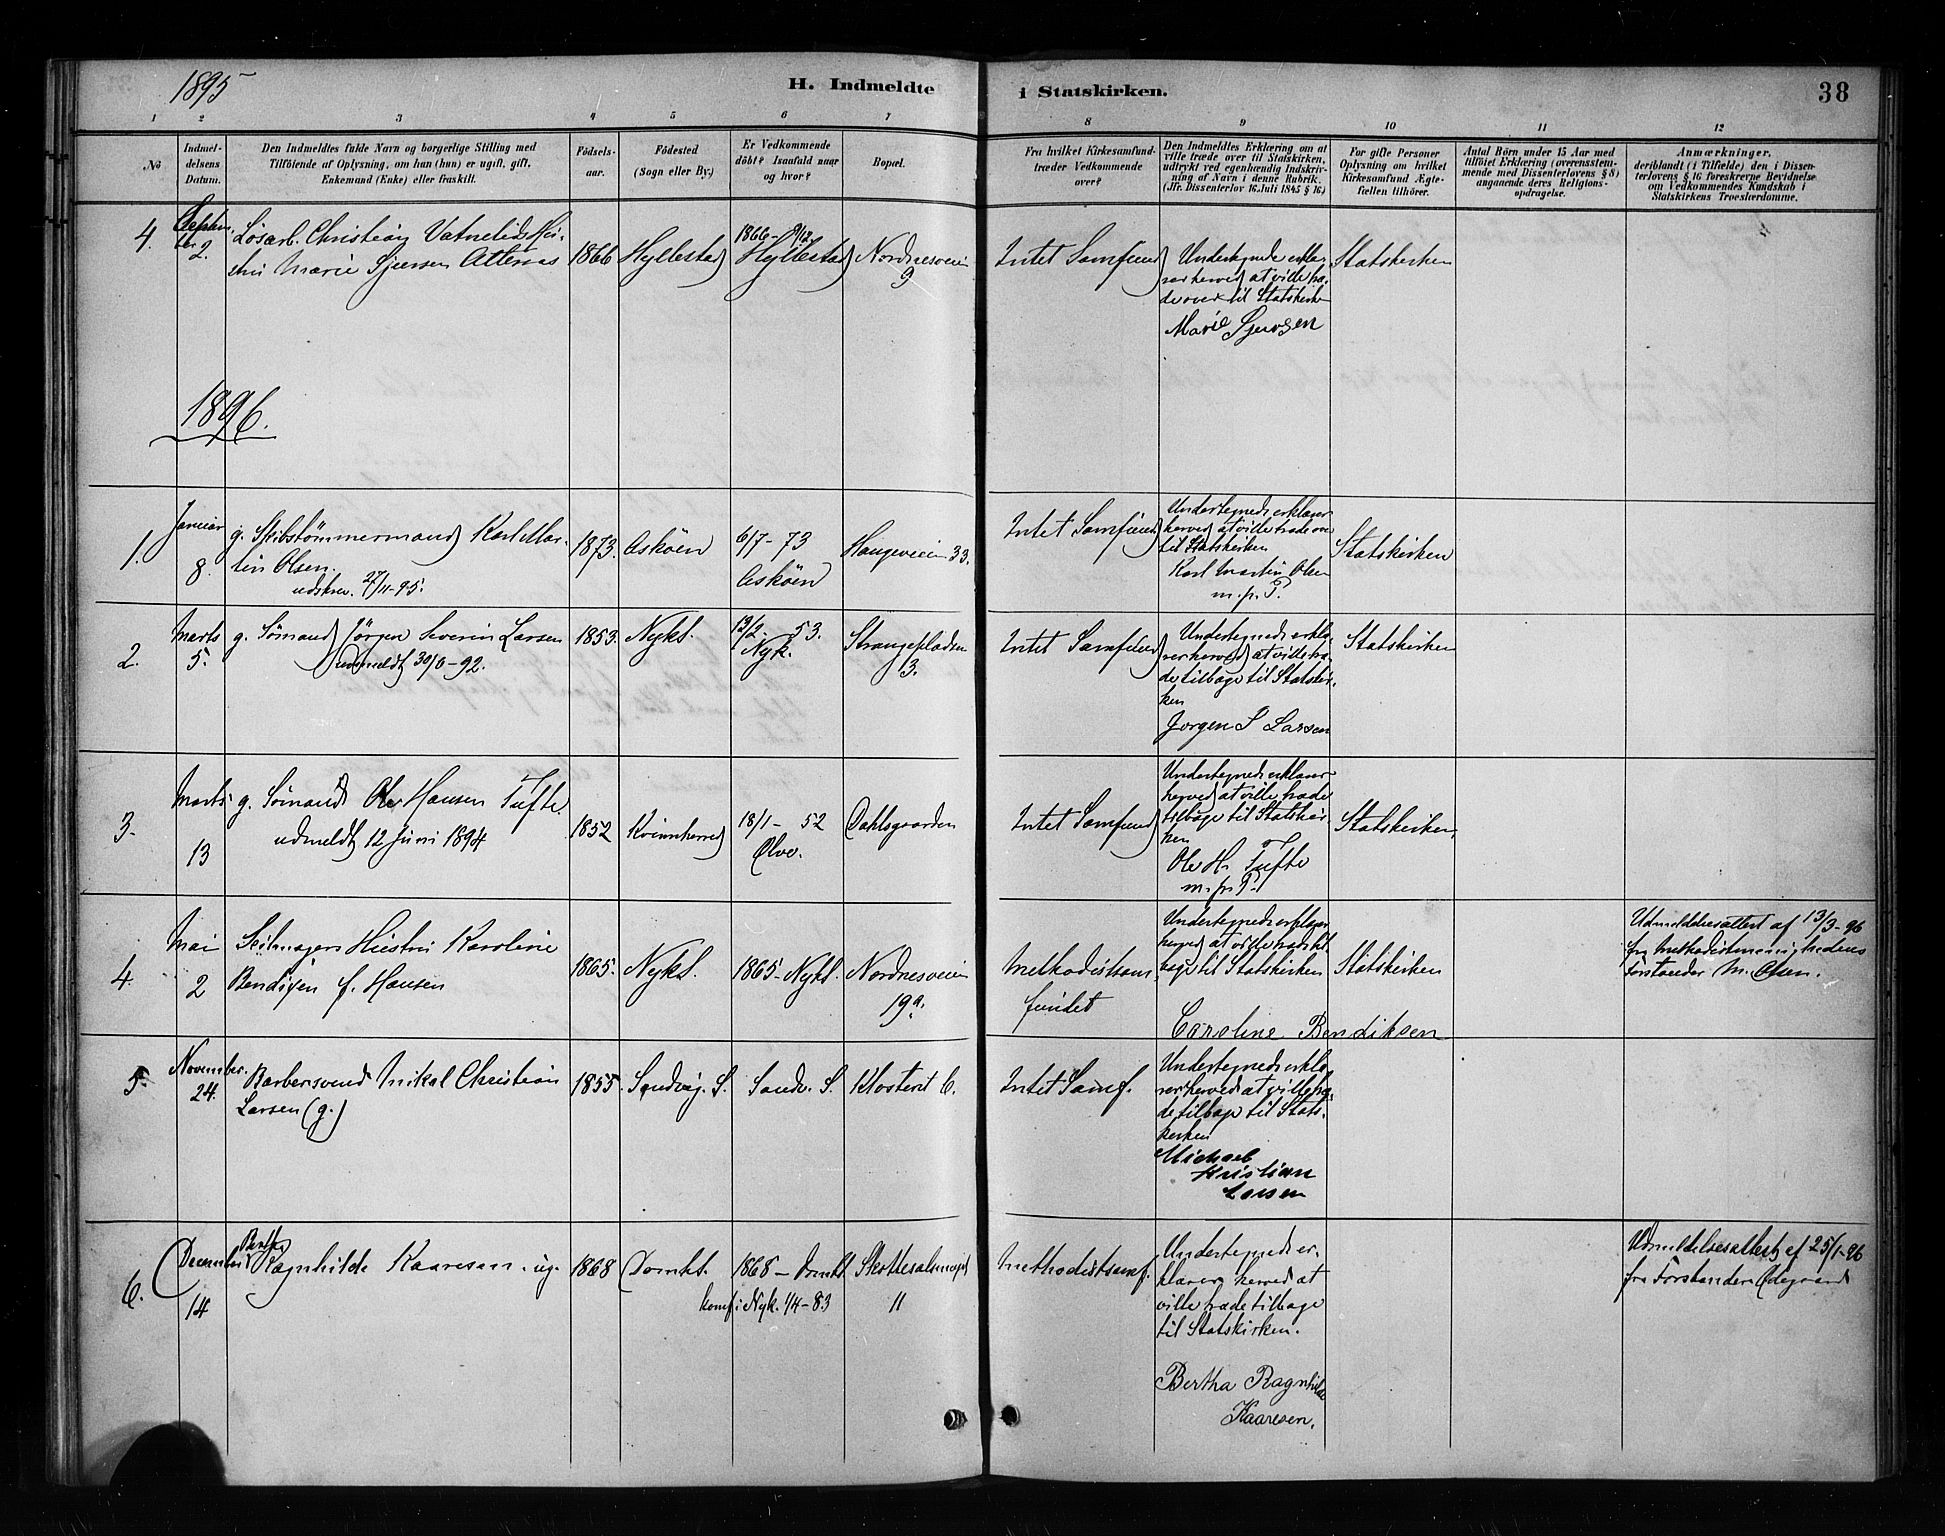 1895
H. Indmeldte
i Statskirken.
38
1 2 3 4 5 6 7 8 9 10 11 12
No
Indmel-
delsens
Datum.
Den Indmeldtes fulde Navn og borgerlige Stilling med
Tilföiende af Oplysning, om han (hun) er ugift, gift,
Enkemand (Enke) eller fraskilt.
Födsels-
aar.
Födested
(Sogn eller By.)
Er Vedkommende
döbt? Isaafald naar
og hvor?
Bopæl.
Fra hvilket Kirkesamfund
træder Vedkommende
over?
Den Indmeldtes Erklæring om at
ville træde over til Statskirken,
udtrykt ved egenhændig Indskriv-
ning af Navn i denne Rubrik.
(Jfr. Dissenterlov 16 Juli 1845 § 16)
For gifte Personer
Oplysning om hvilket
Kirkesamfund Ægte-
fællen tilhörer.
Antal Börn under 15 Aar med
tilföiet Erklæring (overensstem-
mende med Dissenterlovens § 8)
angaaende deres Religions-
opdragelse.
Anmærkninger,
deriblandt (i Tilfælde) den i Dissen-
terlovens § 16 foreskrevne Bevidnelse
om Vedkommendes Kundskab i
Statskirkens Troeslærdomme.
4.
Septem-
ber
2.
Løsarb. Christian Vatnelids Hu-
stru Marie Sjursen
1866
Hyllestad
1866 - 9/12
Hyllestad
Nordnesveien
9
Intet Samfund
Undertegnede erklæ-
rer herved at ville træ-
de over til Statskirken
Marie Sjursen
Statskirken
1896.
1.
Januar
8.
g. Skibstømmermand Karl Mar-
tin Olsen.
udskrev. 27/11-95.
1873.
Askøen
6/7 - 73
Askøen
Haugeveien 33.
Intet Samfund
Undertegnede erklærer
herved at ville træde over
til Statskirken
Karl Martin Olsen
m. p. P.
Statskirken
2.
Marts
5.
g. Sømand Jørgen Severin Larsen
udmeldt 30/6-92.
1853.
Nykt.
13/2 - 53.
Nyk.
Strangepladsen
3.
Intet Samfund
Undertegnede erklæ-
rer herved at ville træ-
de tilbage til Statskir-
ken
Jorgen S Larsen
Statskirken
3.
Marts
13
g. Sømand Ole Hansen Tufte.
udmeldt 12 Juni 1894
1852
Kvinnherred
18/1 - 52
Ølve.
Dahlsgaarden
Intet Samfund
Undertegnede erklærer
herved at ville træde
tilbage til Statskir-
ken
Ole H. Tufte
m. p. P.
Statskirken.
4.
Mai
2
Seilmagers Hustru Karoline
Bendixen f. Hansen
1865.
Nykt.
1865 - Nykt.
Nordnesveien
19a.
Methodistsam-
fundet
Undertegnede erklærer
herved at ville træde til-
bage til Statskirken
Caroline Bendiksen
Statskirken
Udmeldelsesattest af 13/3-96
fra Methodistmenighedens
Forstander M. Olsen.
5.
November.
24.
Barbersvend Mikal Christian
Larsen (g.)
1855.
Sandvig. S.
Sandv. S.
Klosteret 6.
Intet Samf.
Undertegnede erklæ-
rer herved at ville træ-
de tilbage til Stats-
kirken
Michael
Kristian
Larsen
6.
December
14
Bertha
Ragnhilde Kaaresen. ug.
1868
Domkt.
1868 - Domkt
konf. i Nyk. 1/4-83
Skottesalmenget
11
Methodistsamf.
Undertegnede er-
klærer herved at
ville træde tilbage
til Statskirken.
Bertha Ragnhilde
Kaaresen.
Udmeldelsesattest af 25/1-96
fra Forstander Ødegaard